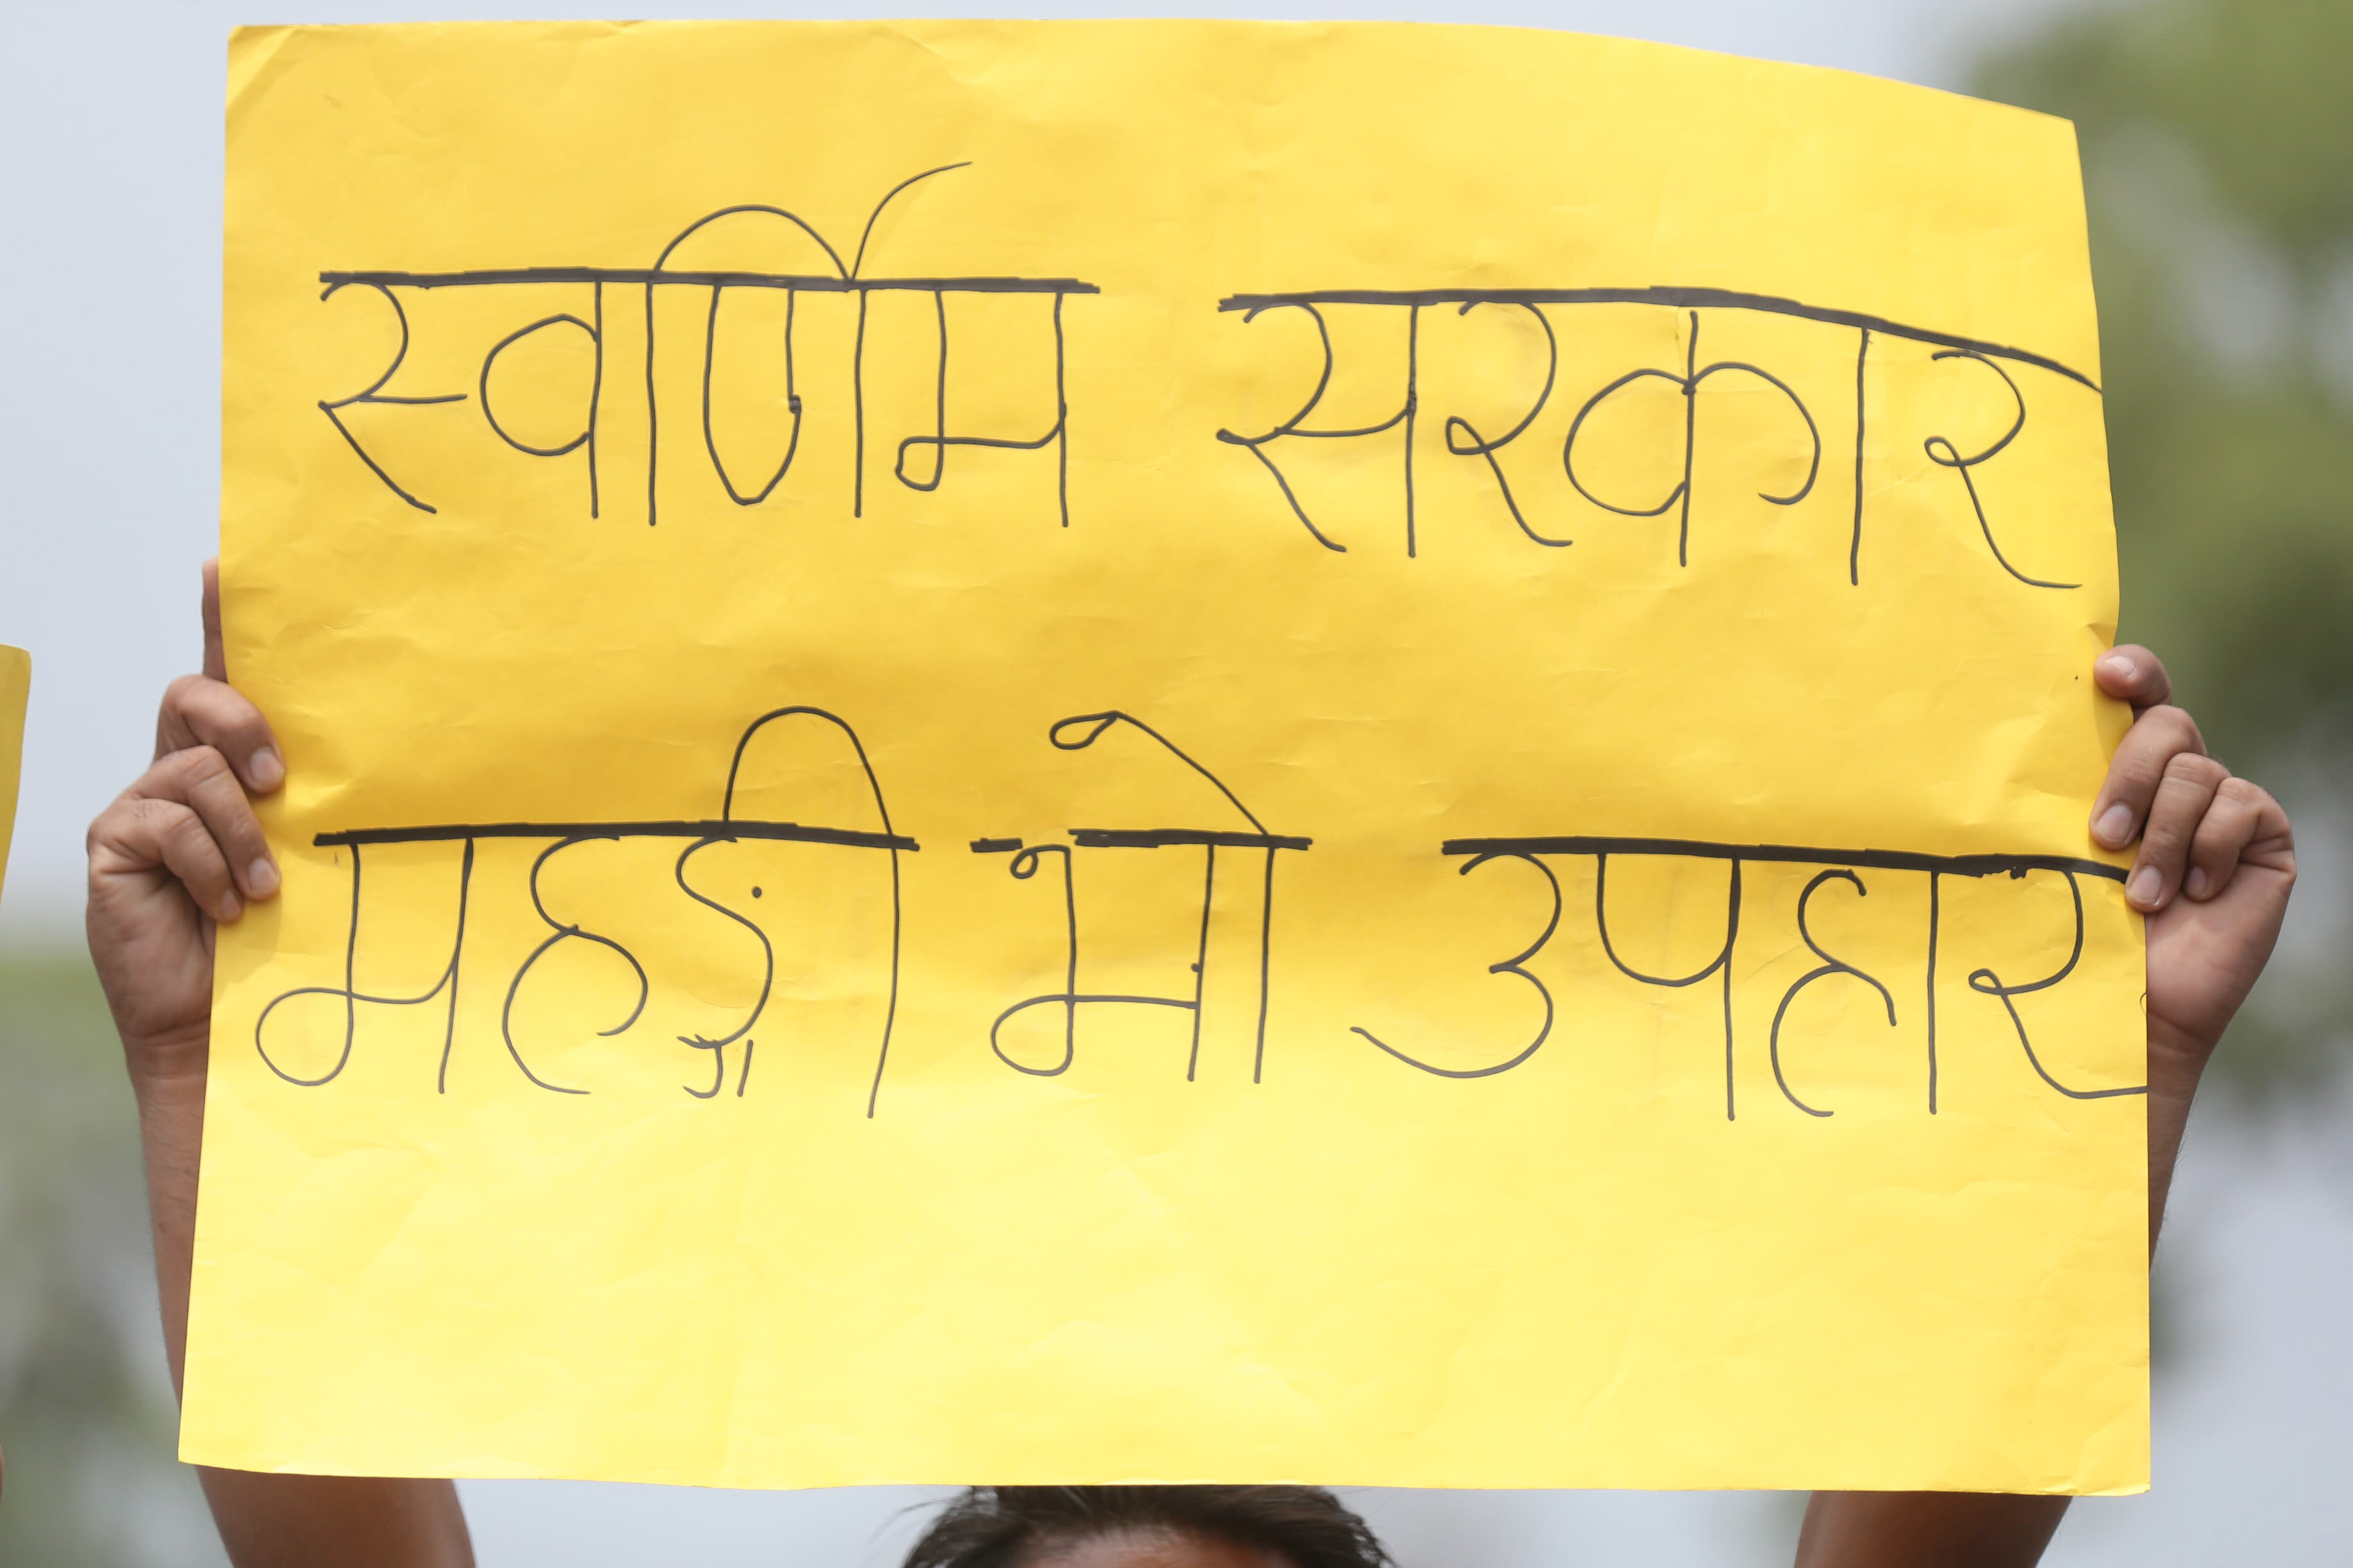 स्वर्णिम सरकार
महङ्गी भो उपहार